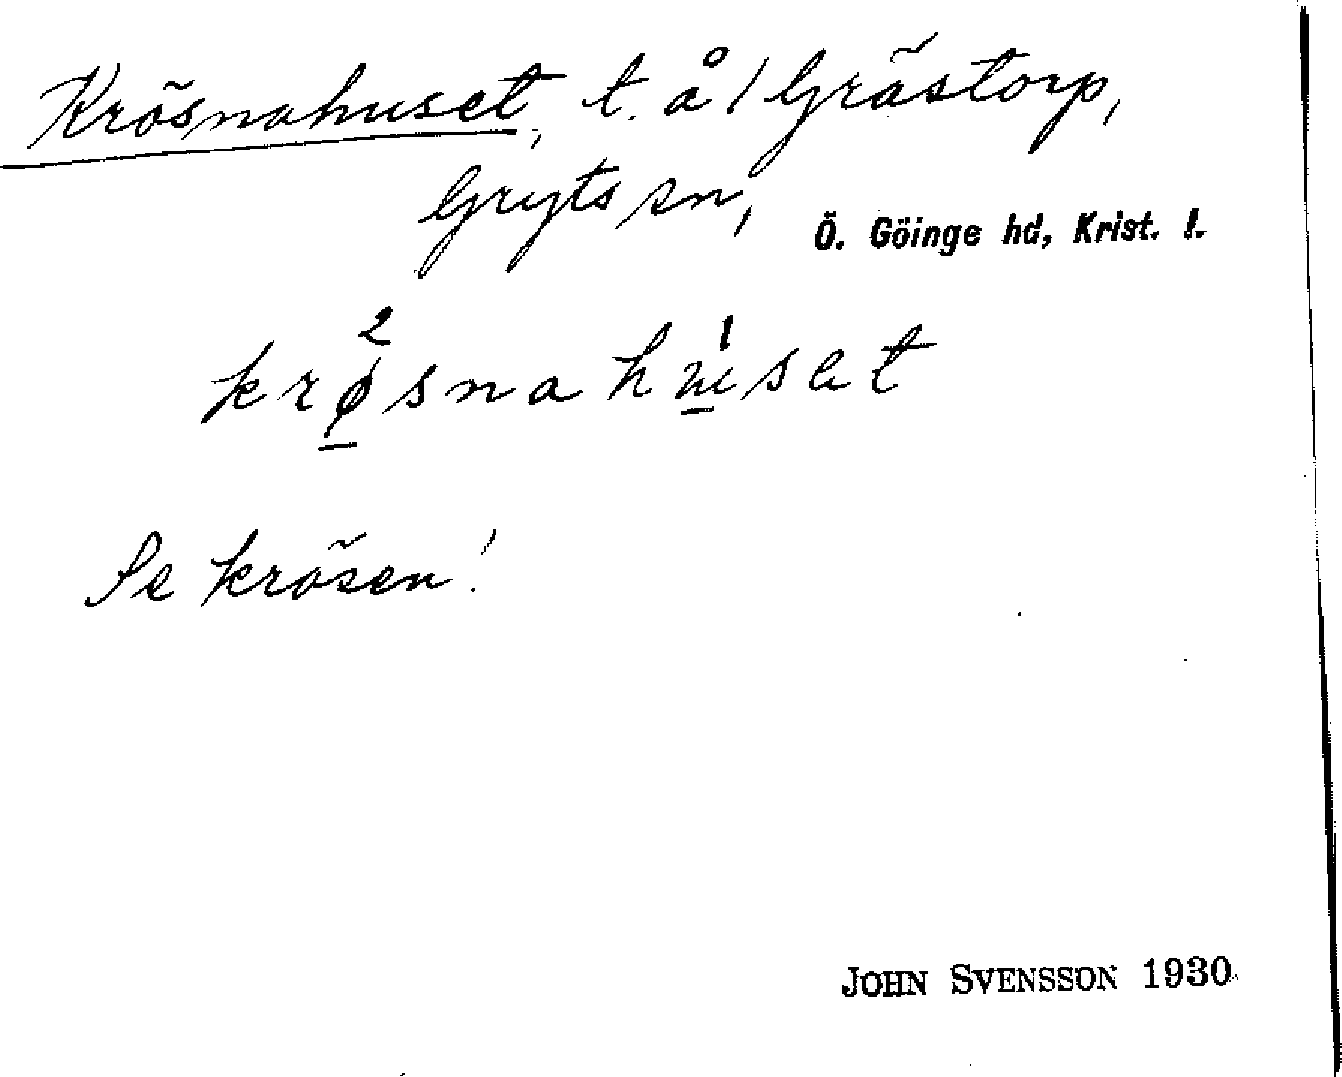 Krösnahuset, t. å 1 Grästorp,
Gryts sn, Ö. Göinge hd, Krist. l.
krø²snahu¹sat
Se krösen!
JOHN SVENSSON 1930